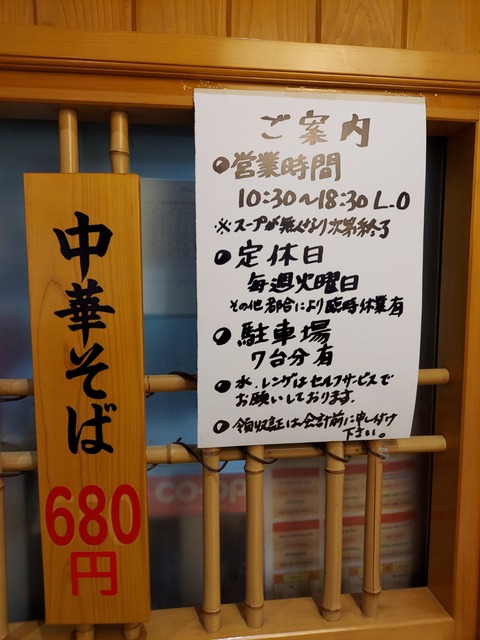 中華そば
680
円
ご案内
●営業時間
10:30～18:30 L.O
※スープが無くなり次第終了
●定休日
毎週火曜日
その他都合により臨時休業有
●駐車場
7台分有
●水.レンゲはセルフサービスで
お願いしております.
●領収証は会計前に申し付け
下さい。
CO-OP